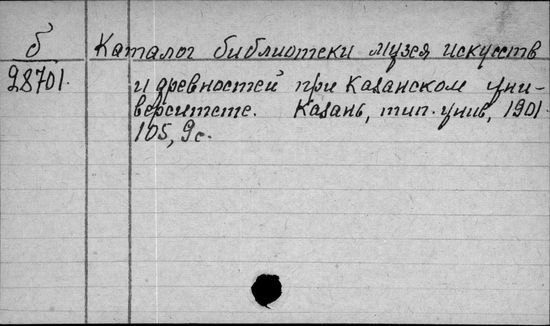 б Каталог библиотеки музея искусств
98701. и древностей при Казанском уни-
верситете. Казань, тип. унив, 1901.
105, 9с.